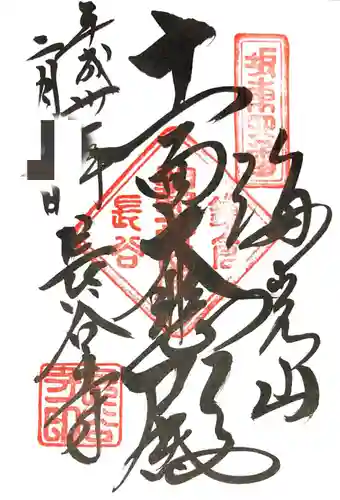 坂東四番
海光山
十一面大悲殿
鎌倉
長谷
平成廿一年
二月
日
長谷寺